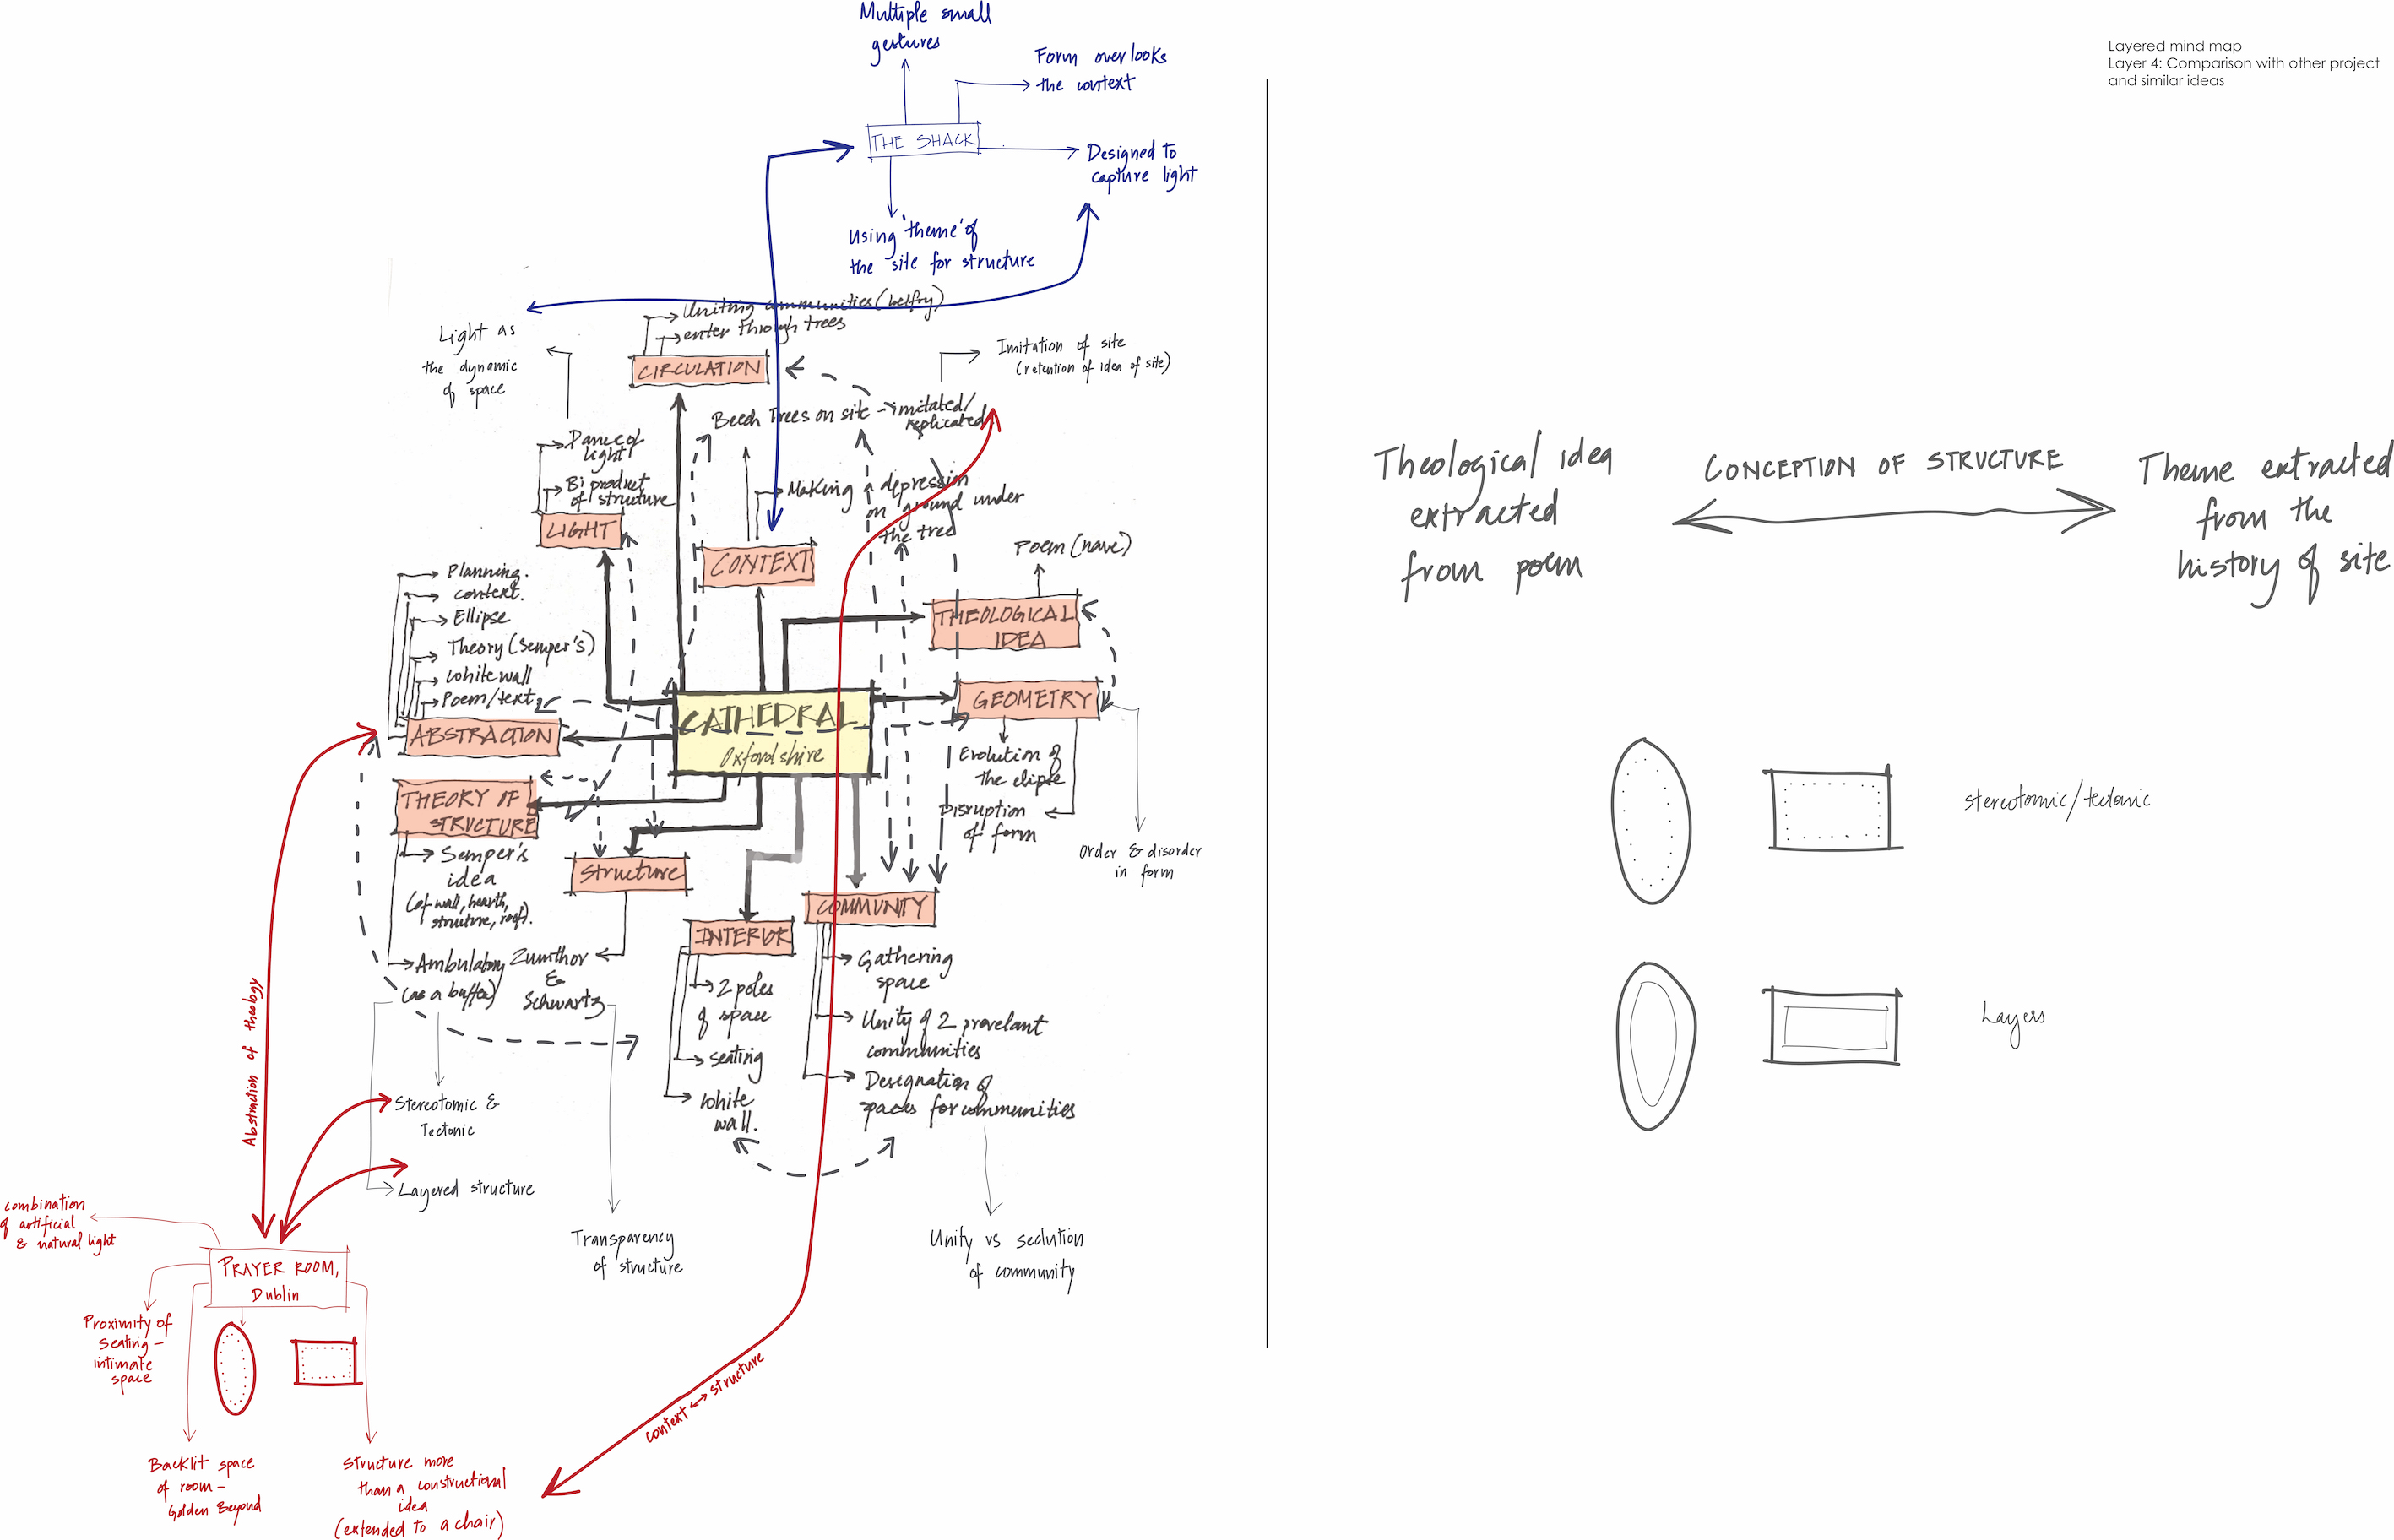 Layered mind map
Layer 4: Comparison with other project
and similar ideas
Multiple small
gestures
Form overlooks
the context
THE SHACK
Designed to
capture light
Using 'theme' of
the site for structure
Uniting communities (belfry)
enter through trees
CIRCULATION
Light as
the dynamic
of space
Imitation of site
(retention of idea of site)
Beech Trees on site - imitated/
replicated
Dance of
light
Bi product
of structure
LIGHT
Making a depression
on ground under
the tree
CONTEXT
Poem (nave)
THEOLOGICAL
IDEA
Planning.
context.
Ellipse
Theory (Semper's)
White wall
Poem/text
ABSTRACTION
CATHEDRAL
Oxfordshire
GEOMETRY
Evolution of
the elipse
Disruption
of form
Order & disorder
in form
THEORY OF
STRUCTURE
Semper's
idea
(of wall, hearth,
structure, roof).
Ambulatory
(as a buffer)
Structure
Zumthor
&
Schwartz
INTERIOR
2 poles
of space
seating
White
wall.
COMMUNITY
Gathering
space
Unity of 2 prevelant
communities
Designation of
spaces for communities
Stereotomic &
Tectonic
Layered structure
Transparency
of structure
Unity vs seclution
of community
Abstraction of theology
context ↔ structure
combination
of artificial
& natural light
PRAYER ROOM,
Dublin
Proximity of
seating -
intimate
space
Backlit space
of room -
Golden Beyond
Structure more
than a constructional
idea
(extended to a chair)
Theological idea
extracted
from poem
CONCEPTION OF STRUCTURE
Theme extracted
from the
history of site
stereotomic/tectonic
Layers